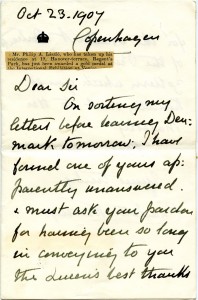 Oct 23. 1907
Copenhagen
Mr. Philip A. László, who has taken up his
residence at 19, Hanover-terrace, Regent's
Park, has just been awarded a gold medal at
the International Exhibition at
Dear Sir
On sorting my
letters before leaving Den-
mark tomorrow, I have
found one of yours ap-
parently unanswered.
I must ask your pardon
for having been so long
in conveying to you
the Queen's best thanks